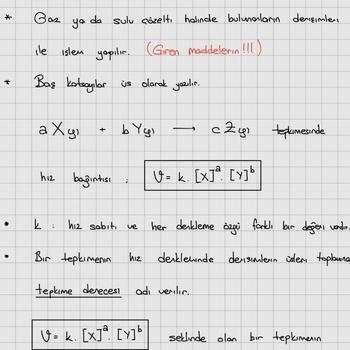 * Gaz ya da sulu çözelti halinde bulunanların derişimleri
ile işlem yapılır. (Giren maddelerin!!!)
* Baş katsayılar üs olarak yazılır.
a X(g) + b Y(g) → c Z(g) tepkimesinde
hız bağıntısı ; ϑ = k. [X]ᵃ. [Y]ᵇ
• k : hız sabiti ve her denkleme özgü farklı bir değeri vardır.
• Bir tepkimenin hız denkleminde derişimlerin üsleri toplamına
tepkime derecesi adı verilir.
ϑ = k. [X]ᵃ. [Y]ᵇ şeklinde olan bir tepkimenin